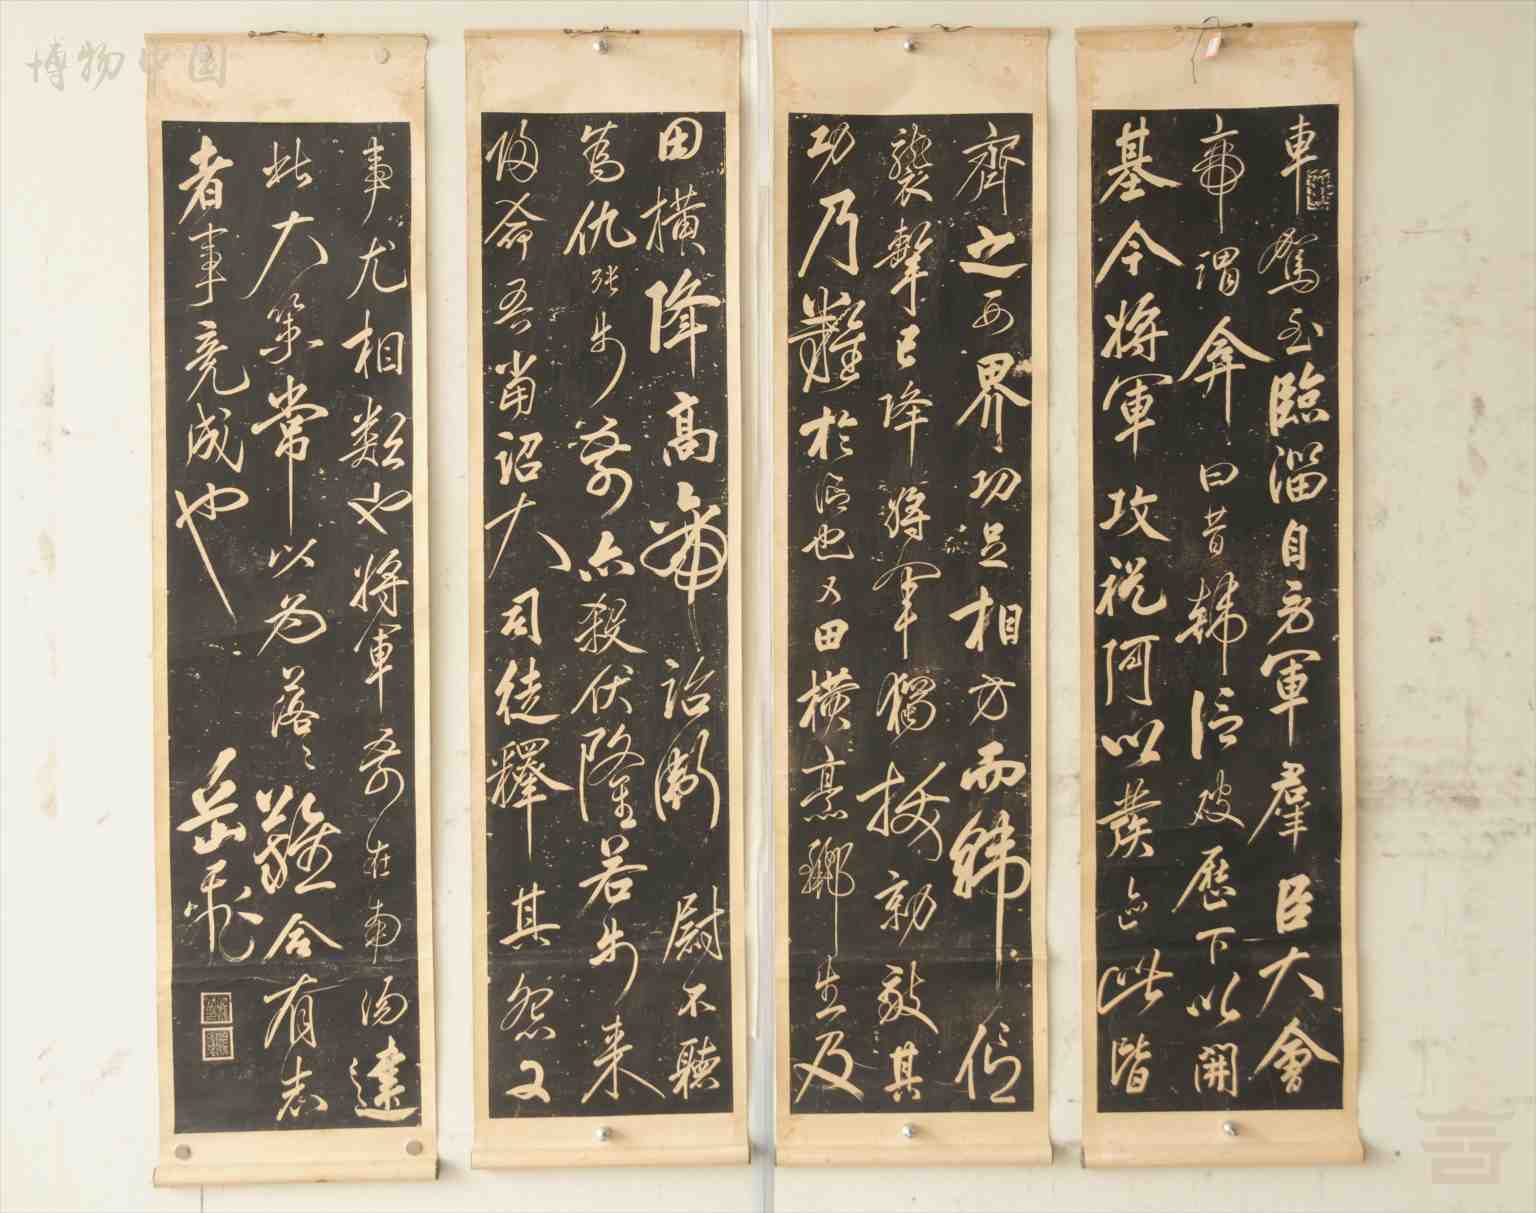 博物中国
車駕至臨淄自勞軍羣臣大會
帝謂弇曰昔韓信破歷下以開
基今將軍攻祝阿以發迹此皆
齊之西界功足相方而韓信
襲擊已降將軍獨拔勍敵其
功乃難於信也又田橫烹酈生及
田橫降高帝詔衛尉不聽
為仇張步前亦殺伏隆若步來
歸命吾當詔大司徒釋其怨又
事尤相類也將軍前在南陽建
此大策常以為落〻難合有志
者事竟成也
岳飛